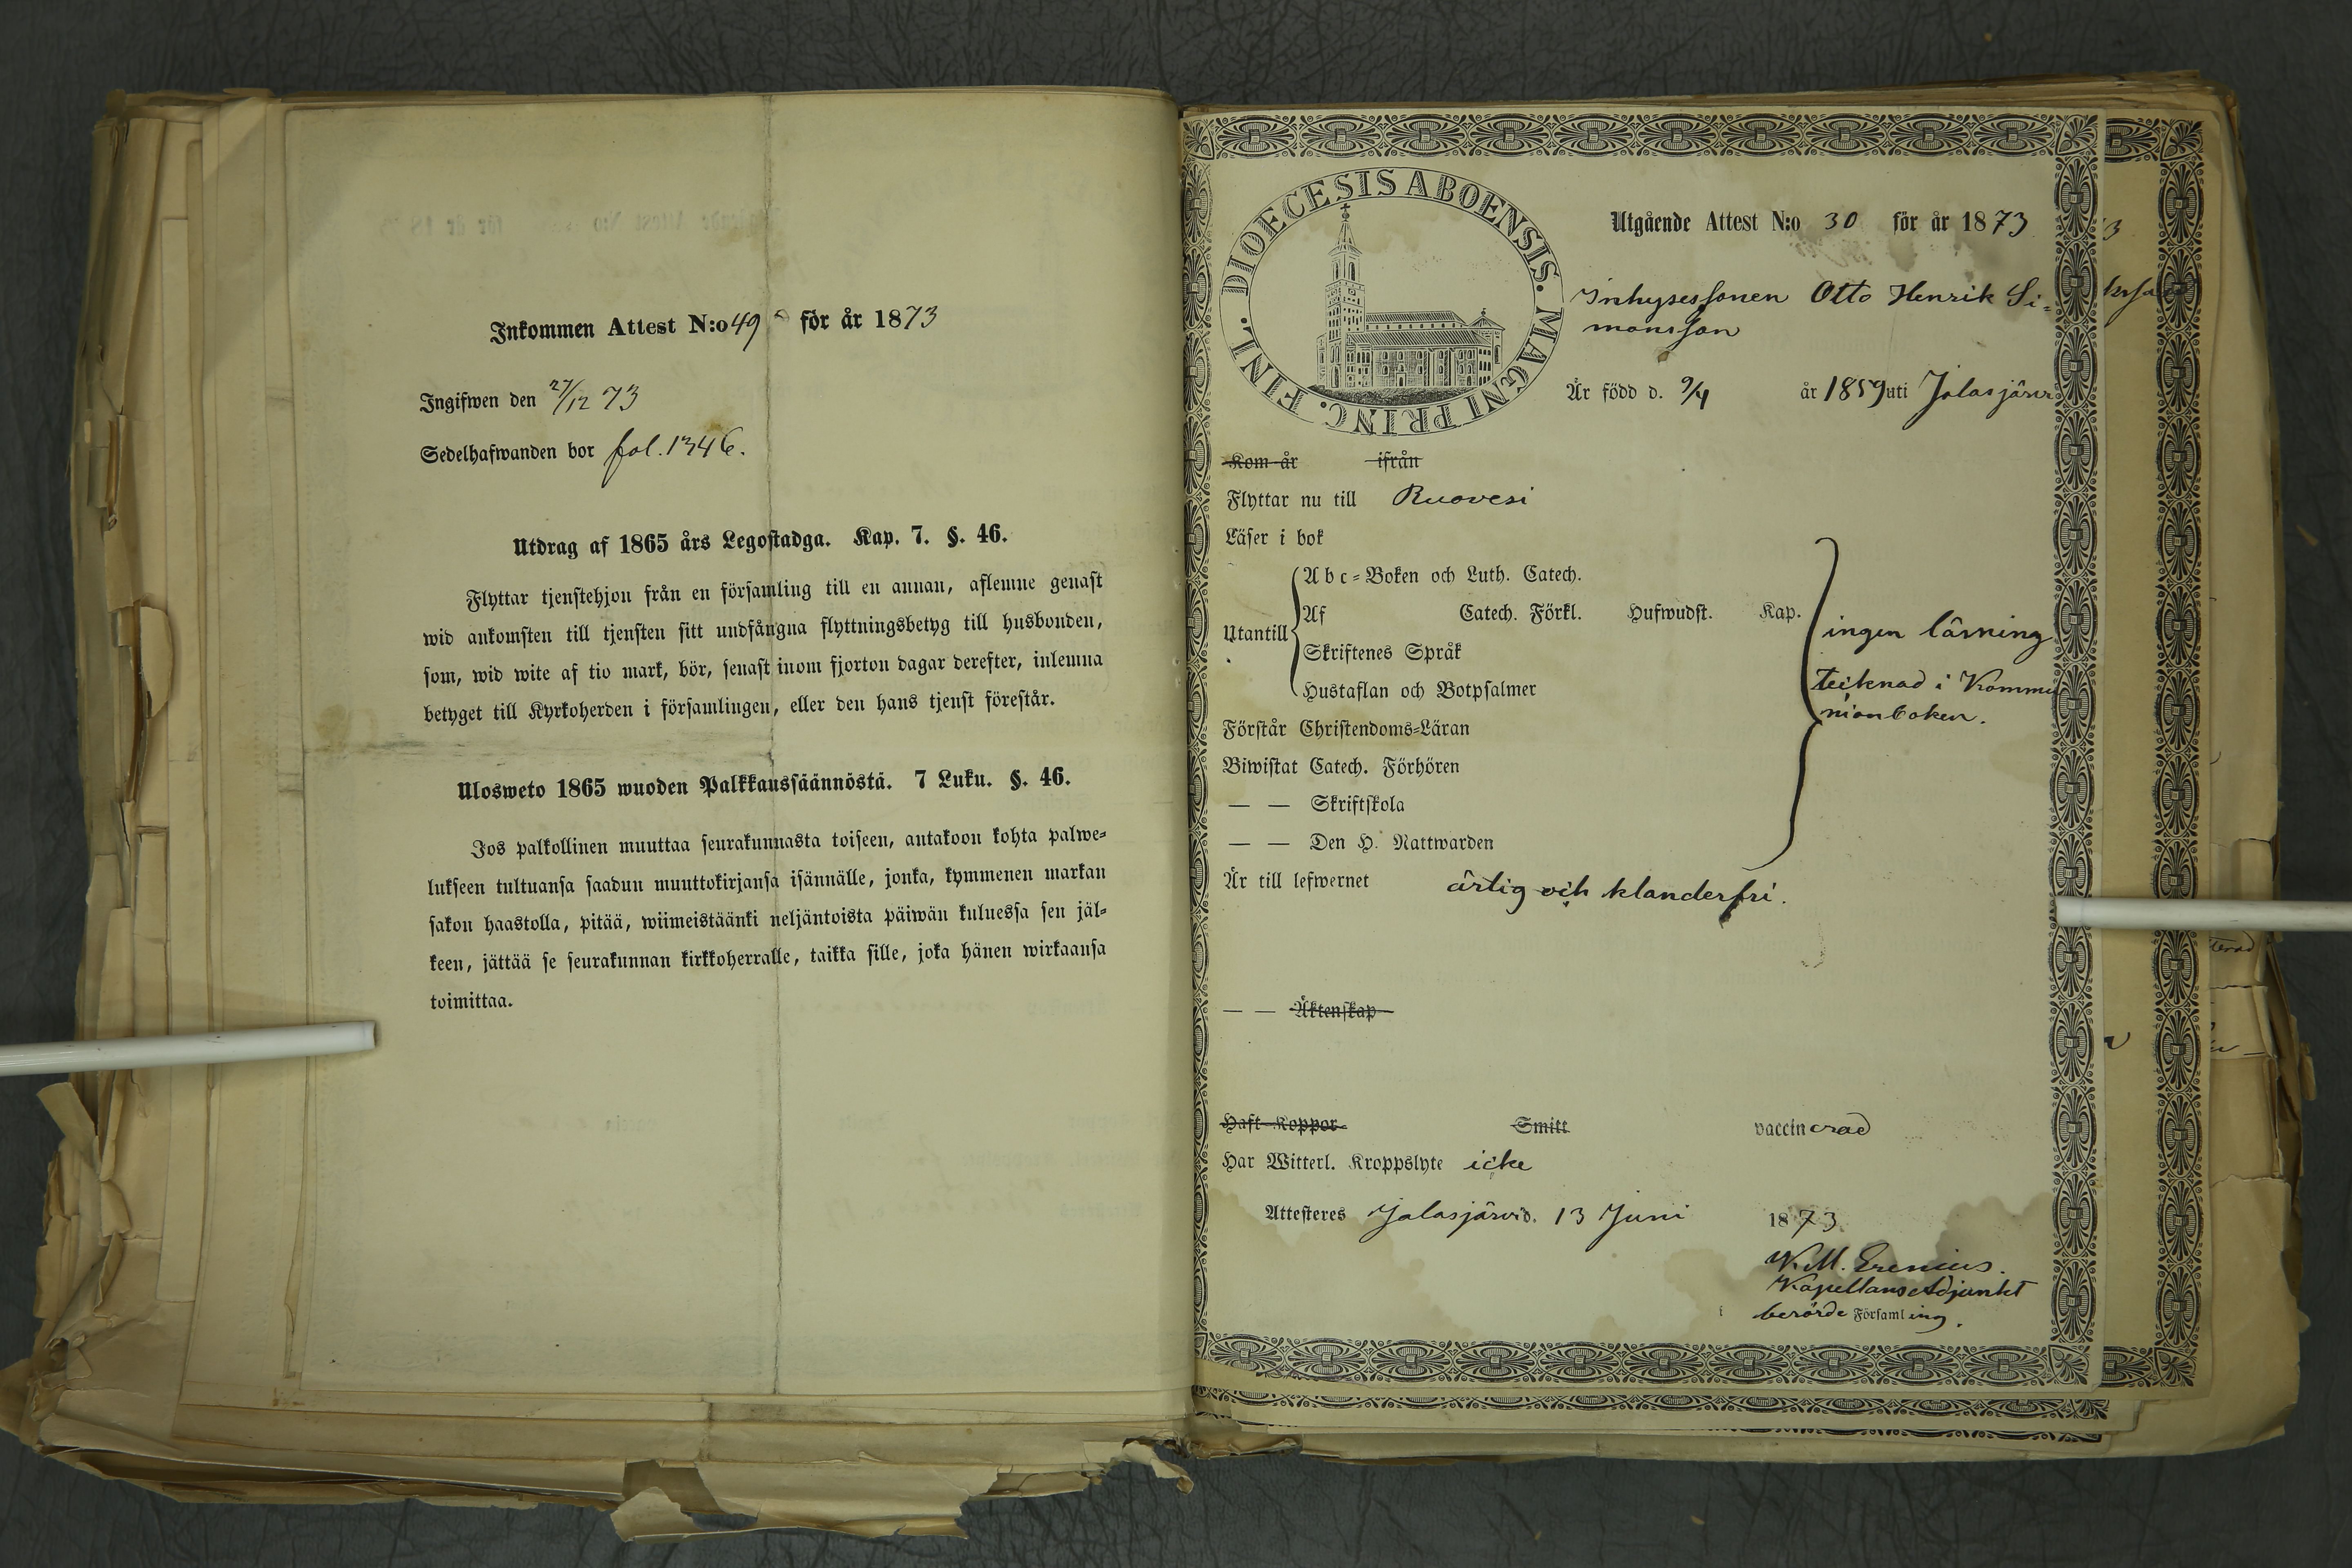 Inkommen Attest N:o 49 för år 1873
Ingifwen den 27/12 73
Sedelhafwanden bor fol. 1346.
Utdrag af 1865 års Legostadga. Kap. 7. §. 46.
Flyttar tjenstehjon från en församling till en annan, aflemne genast
wid ankomsten till tjensten sitt undfångna flyttningsbetyg till husbonden,
som, wid wite af tio mark, bör, senast inom fjorton dagar derefter, inlemna
betyget till Kyrkoherden i församlingen, eller den hans tjenst förestår.
Ulosweto 1865 wuoden Palkkaussäännöstä. 7 Luku. §. 46.
Jos palkollinen muuttaa seurakunnasta toiseen, antakoon kohta palwe-
lukseen tultuansa saadun muuttokirjansa isännälle, jonka, kymmenen markan
sakon haastolla, pitää, wiimeistäänki neljäntoista päiwän kuluessa sen jäl-
keen, jättää se seurakunnan kirkkoherralle, taikka sille, joka hänen wirkaansa
toimittaa.
DIOECESIS ABOENSIS. MAGNI PRINC. FINL.
Utgående Attest N:o 30 för år 1873
Inhysessonen Otto Henrik Si-
monsson
Är född d. 9/4 år 1859 uti Jalasjärvi
Kom år ifrån
Flyttar nu till Ruovesi
Läser i bok
Utantill
Abc-Boken och Luth. Catech.
Af Catech. Förkl. Hufwudst. Kap.
Skriftenes Språk
Hustaflan och Botpsalmer
ingen läsning
tecknad i Kommu
nionboken.
Förstår Christendoms-Läran
Biwistat Catech. Förhören
— — Skriftskola
— — Den H. Nattwarden
Är till lefwernet ärlig och klanderfri.
— — Äktenskap
Haft Koppor Smitt vaccinerad
Har Witterl. Kroppslyte icke
Attesteres Jalasjärvi d. 13 Juni 1873
Kapellans Adjunkt
i berörde Församling.